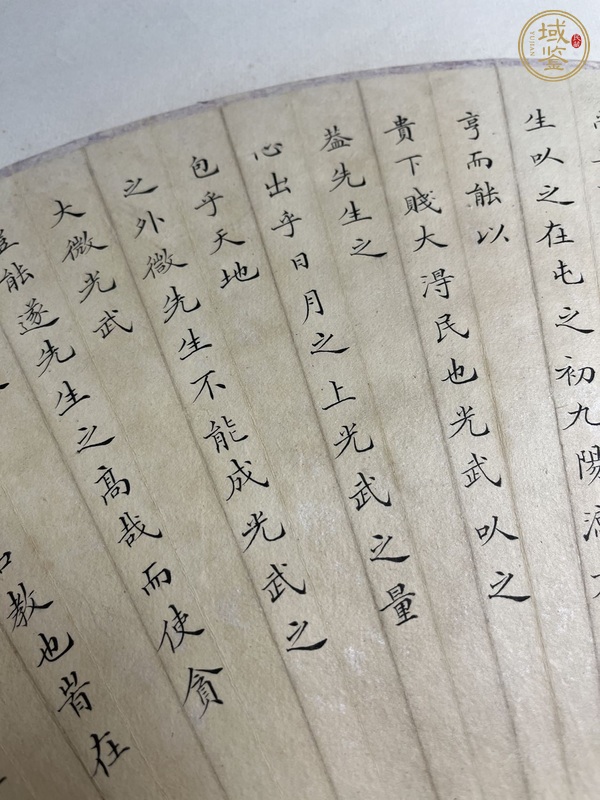 域鉴
YUJIAN
生以之在屯之初九陽
亨而能以
貴下賤大得民也光武以之
葢先生之
心出乎日月之上光武之量
包乎天地
之外微先生不能成光武之
大微光武
豈能遂先生之高哉而使貪
教也旹在